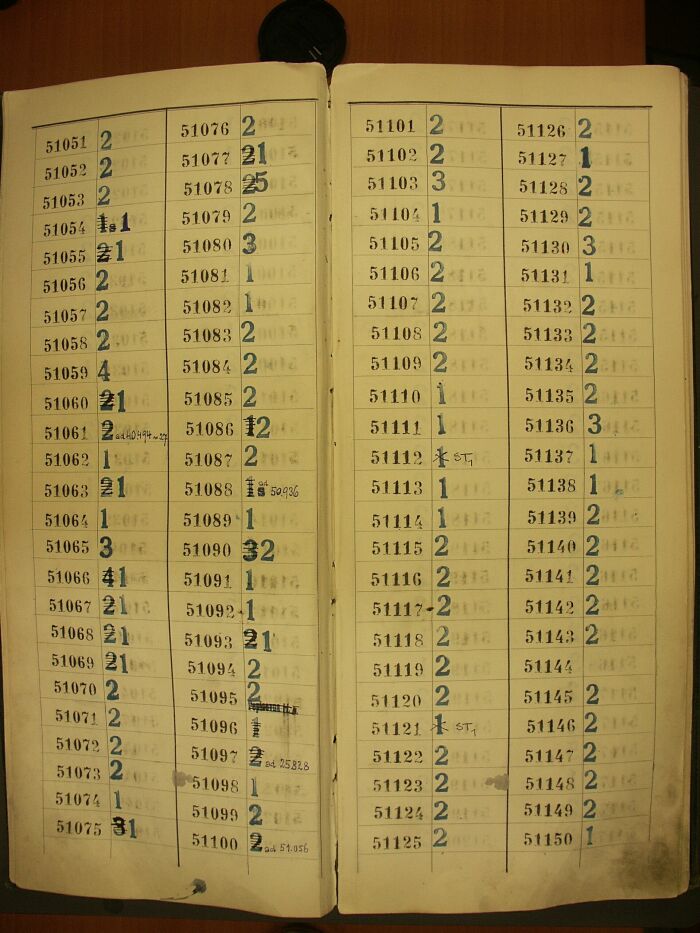 51051 2
51052 2
51053 2
51054 1s 1
51055 2 1
51056 2
51057 2
51058 2
51059 4
51060 2 1
51061 2 ad 40.494
51062 1
51063 2 1
51064 1
51065 3
51066 4 1
51067 2 1
51068 2 1
51069 2 1
51070 2
51071 2
51072 2
51073 2
51074 1
51075 3 1
51076 2
51077 2 1
51078 2 5
51079 2
51080 3
51081 1
51082 1
51083 2
51084 2
51085 2
51086 1 2
51087 2
51088 1s ad 50,936
51089 1
51090 3 2
51091 1
51092 1
51093 2 1
51094 2
51095 2
51096 1
51097 2 ad 25828
51098 1
51099 2
51100 2 ad 51.056
51101 2
51102 2
51103 3
51104 1
51105 2
51106 2
51107 2
51108 2
51109 2
51110 1
51111 1
51112 1 ST1
51113 1
51114 1
51115 2
51116 2
51117 2
51118 2
51119 2
51120 2
51121 1 ST1
51122 2
51123 2
51124 2
51125 2
51126 2
51127 1
51128 2
51129 2
51130 3
51131 1
51132 2
51133 2
51134 2
51135 2
51136 3
51137 1
51138 1
51139 2
51140 2
51141 2
51142 2
51143 2
51144
51145 2
51146 2
51147 2
51148 2
51149 2
51150 1